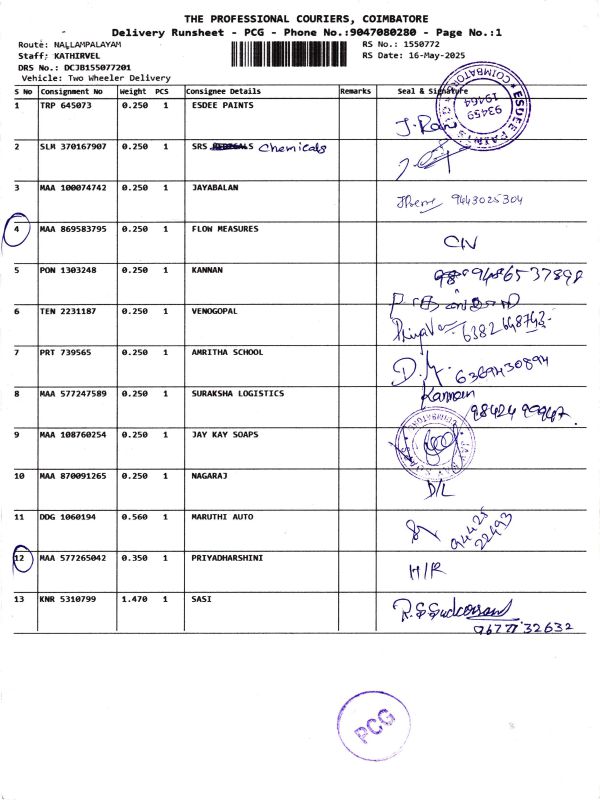 THE PROFESSIONAL COURIERS, COIMBATORE
Delivery Runsheet - PCG - Phone No.:9047080280 - Page No.:1
Route: NALLAMPALAYAM
RS No.: 1550772
Staff; KATHIRVEL
RS Date: 16-May-2025
DRS No.: DCJB155077201
Vehicle: Two Wheeler Delivery
S No Consignment No Weight PCS Consignee Details Remarks Seal & Signature
1 TRP 645073 0.250 1 ESDEE PAINTS
ESDEE PAINTS COIMBATORE
93459
19464
J. Ravi
2 SLM 370167907 0.250 1 SRS Chemicals
3 MAA 100074742 0.250 1 JAYABALAN 9443025304
4 MAA 869583795 0.250 1 FLOW MEASURES CN
5 PON 1303248 0.250 1 KANNAN 9486537898
6 TEN 2231187 0.250 1 VENOGOPAL
6382648743
7 PRT 739565 0.250 1 AMRITHA SCHOOL D.M. 6369430894
8 MAA 577247589 0.250 1 SURAKSHA LOGISTICS Kannan
98424 99947.
9 MAA 108760254 0.250 1 JAY KAY SOAPS
JAY KAY SOAPS COIMBATORE
10 MAA 870091265 0.250 1 NAGARAJ D/L
11 DDG 1060194 0.560 1 MARUTHI AUTO
94425
22493
12 MAA 577265042 0.350 1 PRIYADHARSHINI H/R
13 KNR 5310799 1.470 1 SASI
9677732632
PCG